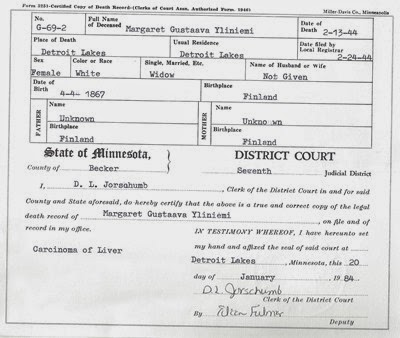 Form 3251—Certified Copy of Death Record—(Clerks of Court Assn. Authorized Form. 1940)
Miller-Davis Co., Minneapolis
No. Full Name of Deceased Date of Death
G-69-2 Margaret Gustaava Yliniemi 2-13-44
Place of Death Usual Residence Date filed by Local Registrar
Detroit Lakes Detroit Lakes 2-24-44
Sex Color or Race Single, Married, Etc. Name of Husband or Wife
Female White Widow Not Given
Date of Birth Birthplace
4-4- 1867 Finland
FATHER Name MOTHER Name
Unknown Unkno wn
Birthplace Birthplace
Finland Finland
State of Minnesota, DISTRICT COURT
County of Becker Seventh Judicial District
I, D. L. Jorschumb, Clerk of the District Court in and for said
County and State aforesaid, do hereby certify that the above is a true and correct copy of the legal
death record of Margaret Gustaava Yliniemi, on file and of
record in my office.
IN TESTIMONY WHEREOF, I have hereunto set
my hand and affixed the seal of said court at
Carcinoma of Liver
Detroit Lakes, Minnesota, this 20
day of January 1984
D.L. Jorschumb
Clerk of the District Court
By
Deputy